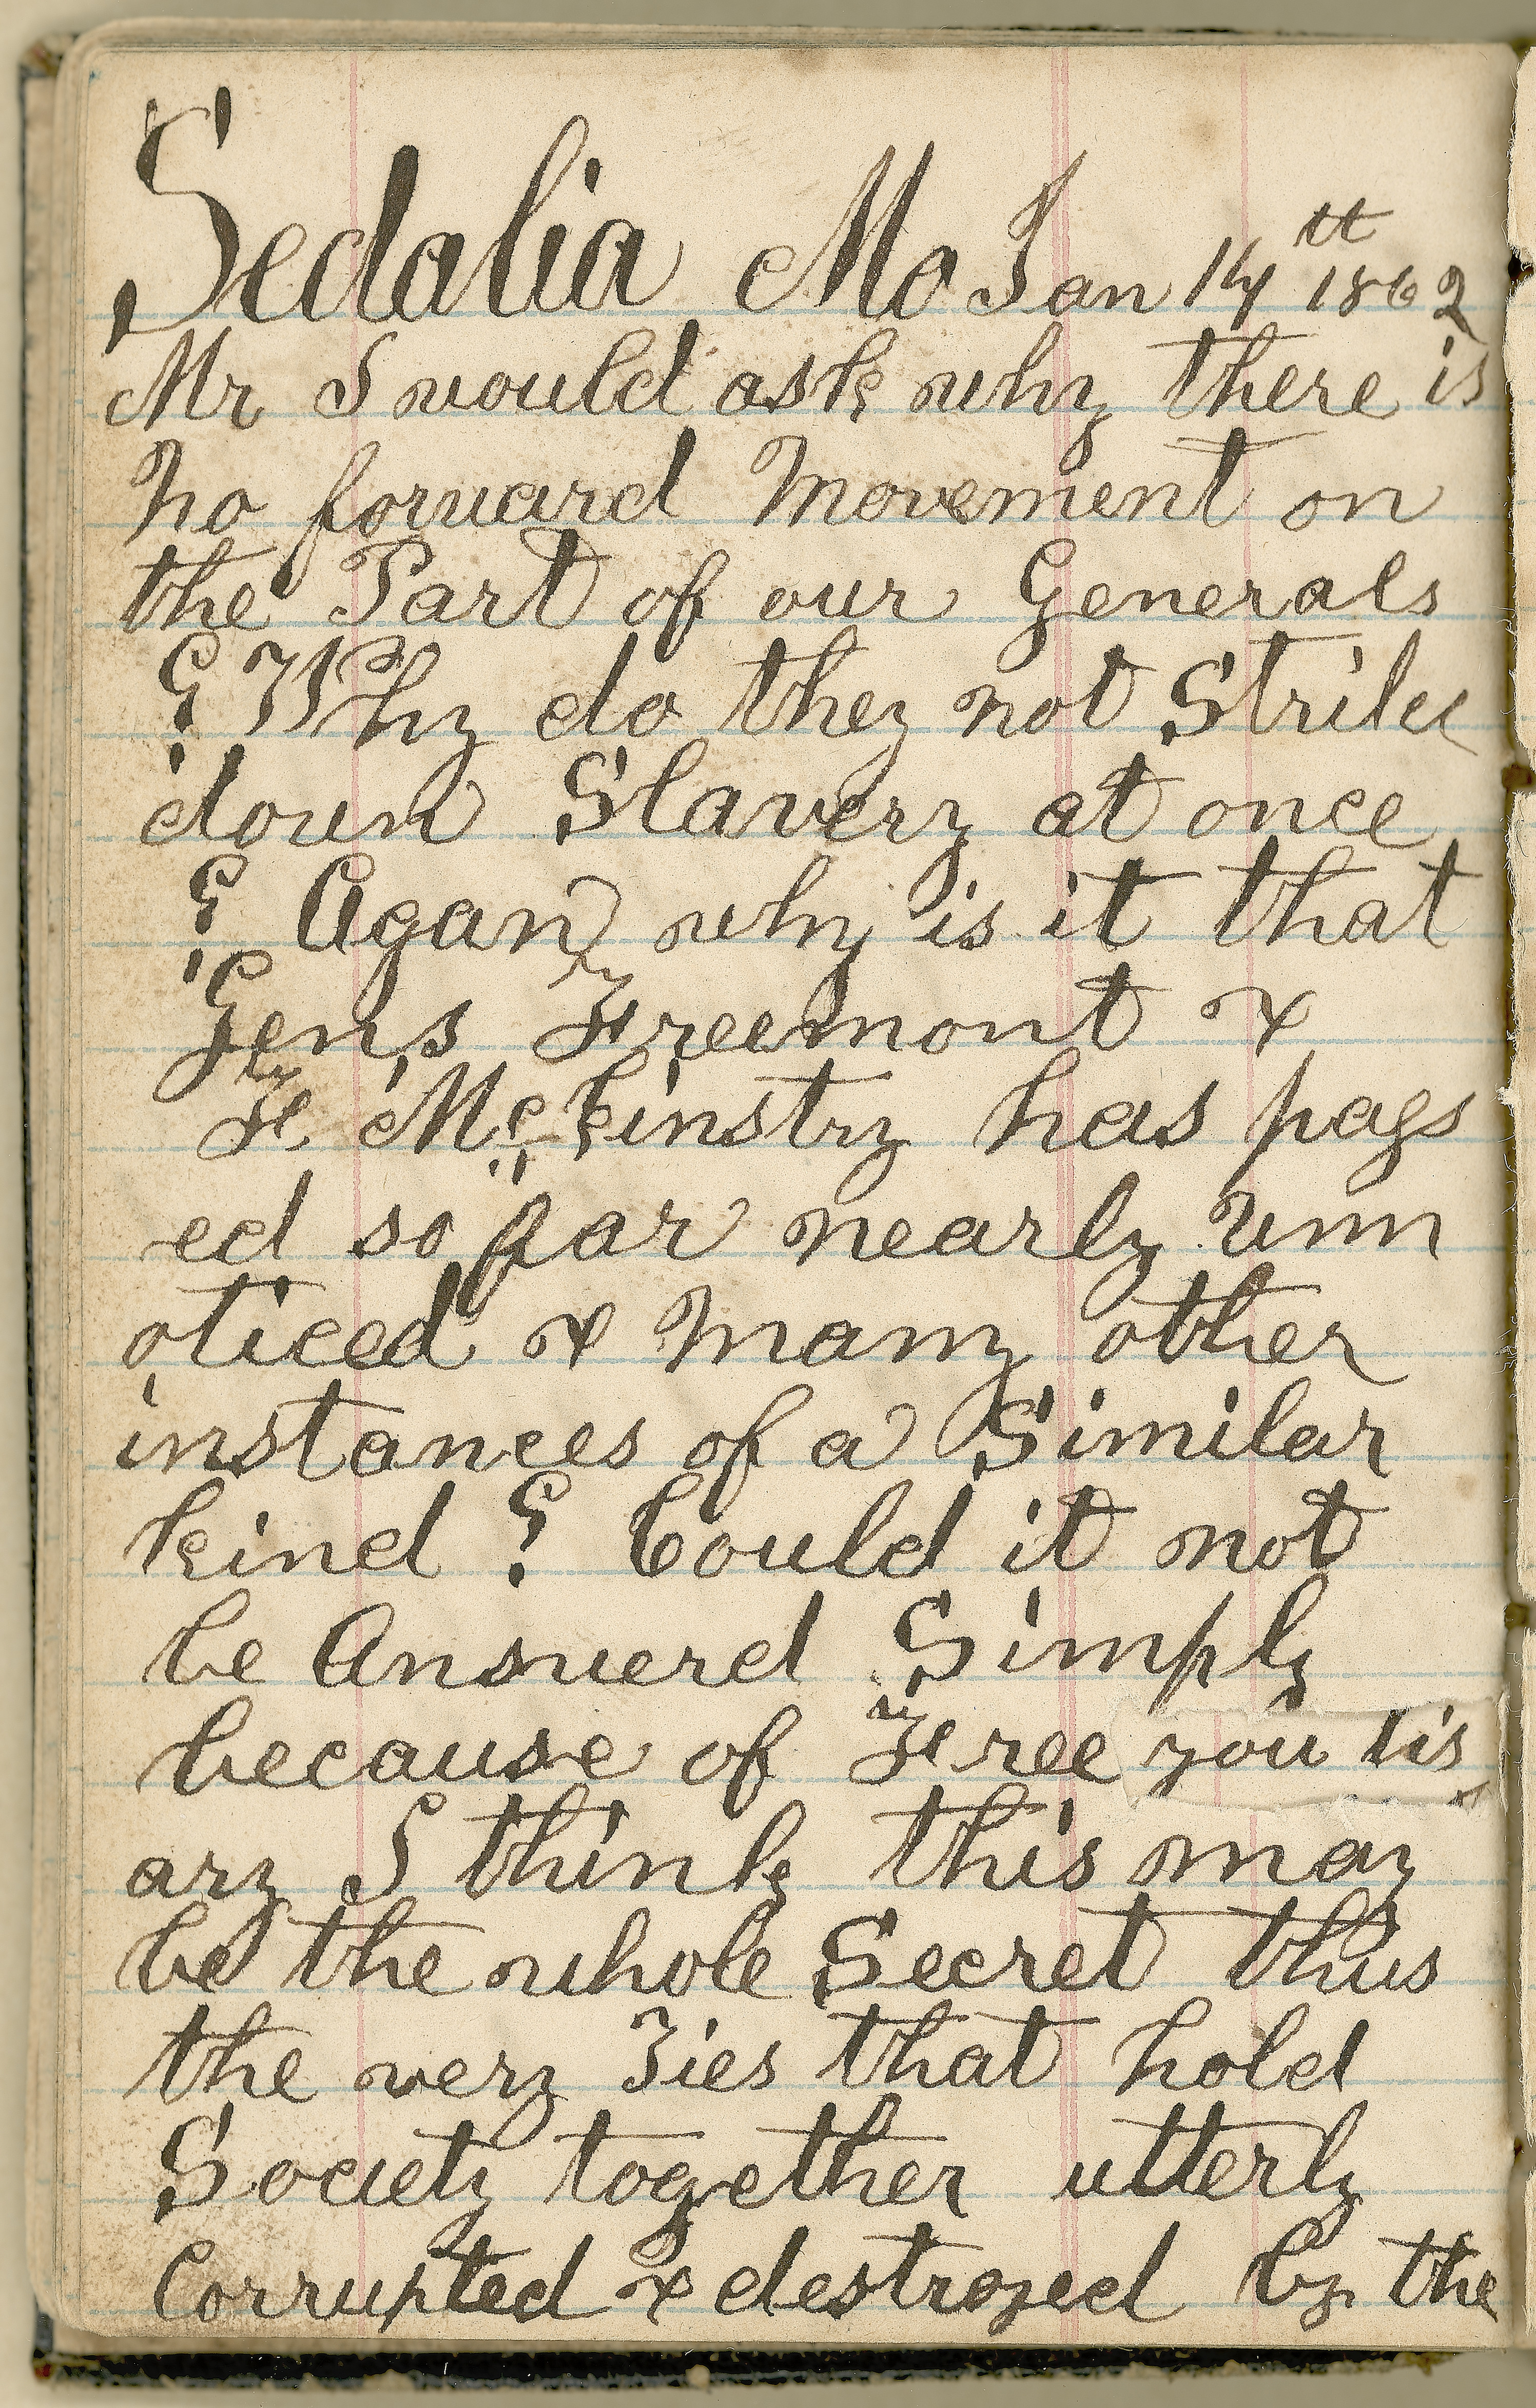 Sedalia Mo Jan 14tt 1862
Mr I would ask why there is
no forward Movement on
the Part of our Generals
? Why do they not Strike
down Slavery at once
? Agan why is it that
Gen,s Freemont &
F McKinstry has pass
ed so far nearly unn
oticed & Many other
instances of a Similar
kind ? Could it not
be Answerd Simply
because of Free you tis
ary I think this may
be the whole Secret thus
the very Ties that hold
Society together utterly
Corrupted & destroyed by the